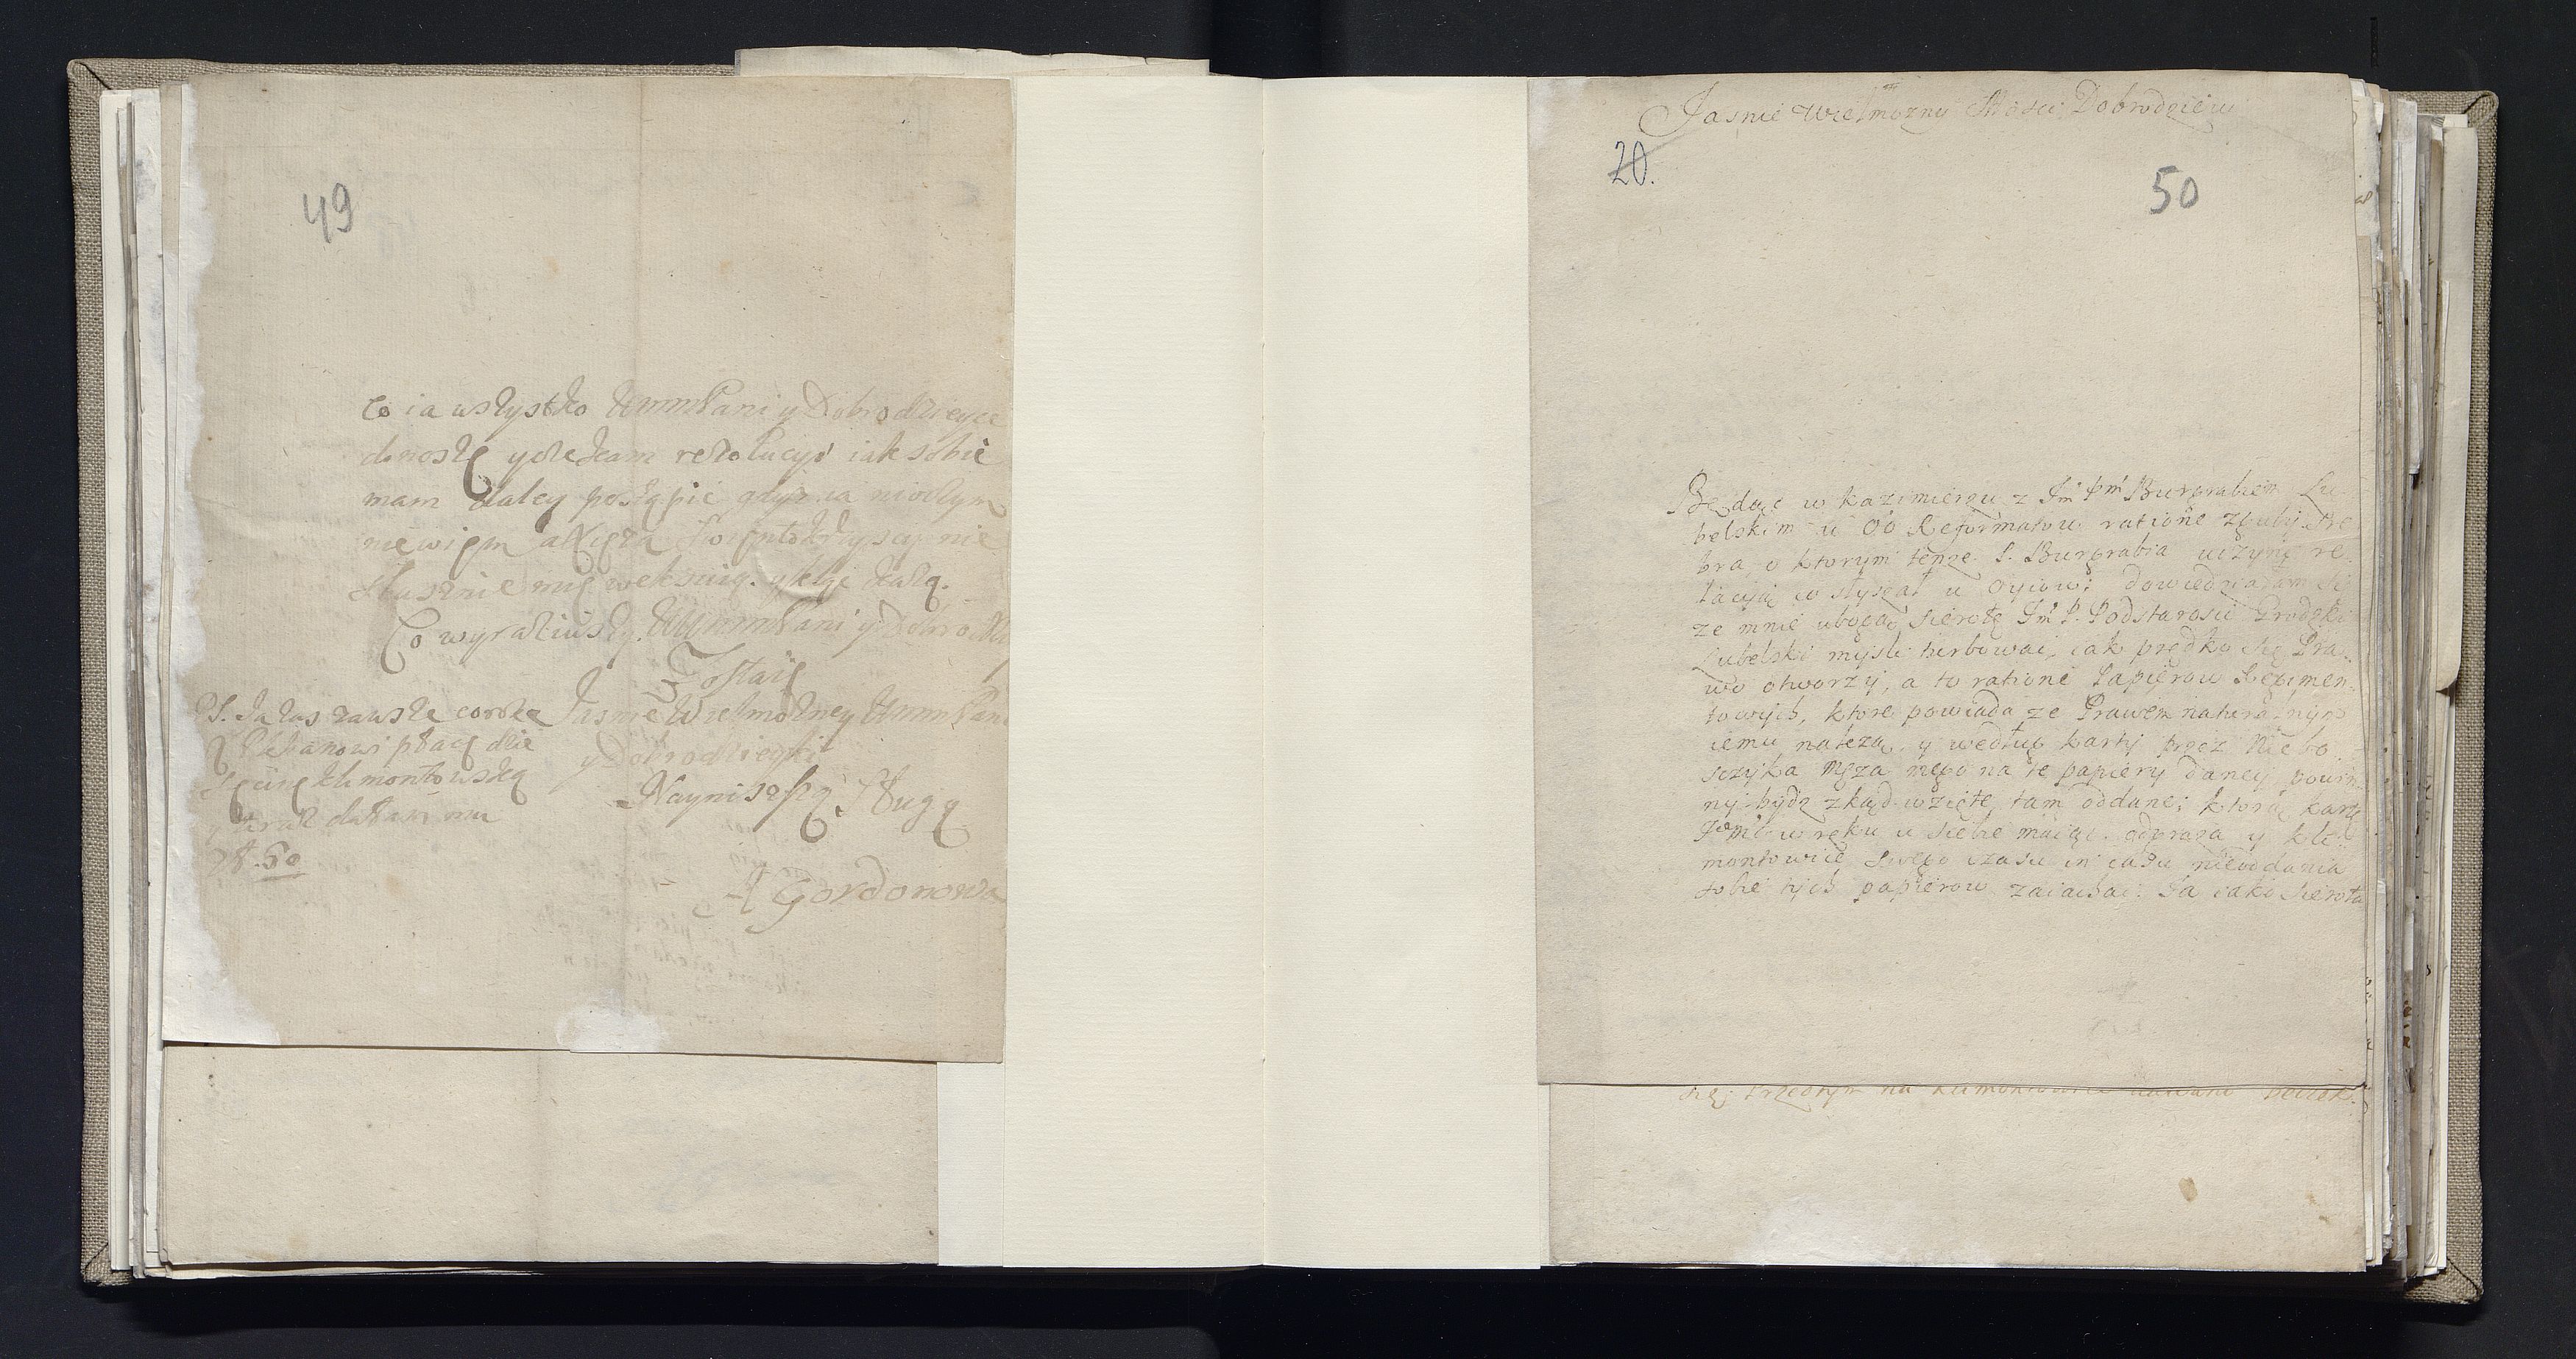 49
Co ia wszystko WmmPani y Dobrodzieyce
donoszę y czekam rezolucyi iak sobie
mam daley postąpić gdyz ia nioczym
niewiem a Xięża Swiętokrzyscy nie
słusznie mię
Co wyraziwszy WMmmPani y Dobrodki
Zostaię
Jasnie Wielmozney WmmPani
y Dobrodzieyki
Nayniszszą Sługą
A Gordonowa
PS.
Plebanowi płacę dzie
sięcinę klimontowską
y teraz dałam mu
zł. 50
Jasnie Wielmozny Mosci Dobrodzieiu
20.
50
Będąc w Kazimierzu z Jm Pm Burgrabiem Lu
belskim u OO Reformatow ratione zguby Sre
bra, o ktorym tenze P. Burgrabia uczyni re
lacyią co słyszał u Oycow; dowiedziałam się
ze mnie ubogą sierotę Jm P. Podstarosci Grodzki
Lubelski mysli turbowac, iak prędko się Pra
wo otworzy, a to ratione Papierow Regimen
towych, ktore powiada ze Prawem naturalnym
iemu nalezą, y według karty przez Niebo
szczyka Męza mego na te papiery daney powin
ny bydz zkąd wzięte, tam oddane; ktorą kartę
Jmc w ręku u siebie maiąc odgraza y Kli
montowice swego czasu in casu nieoddania
sobie tych papierow zaiachac. Ja iako sierota
się; przeorym na